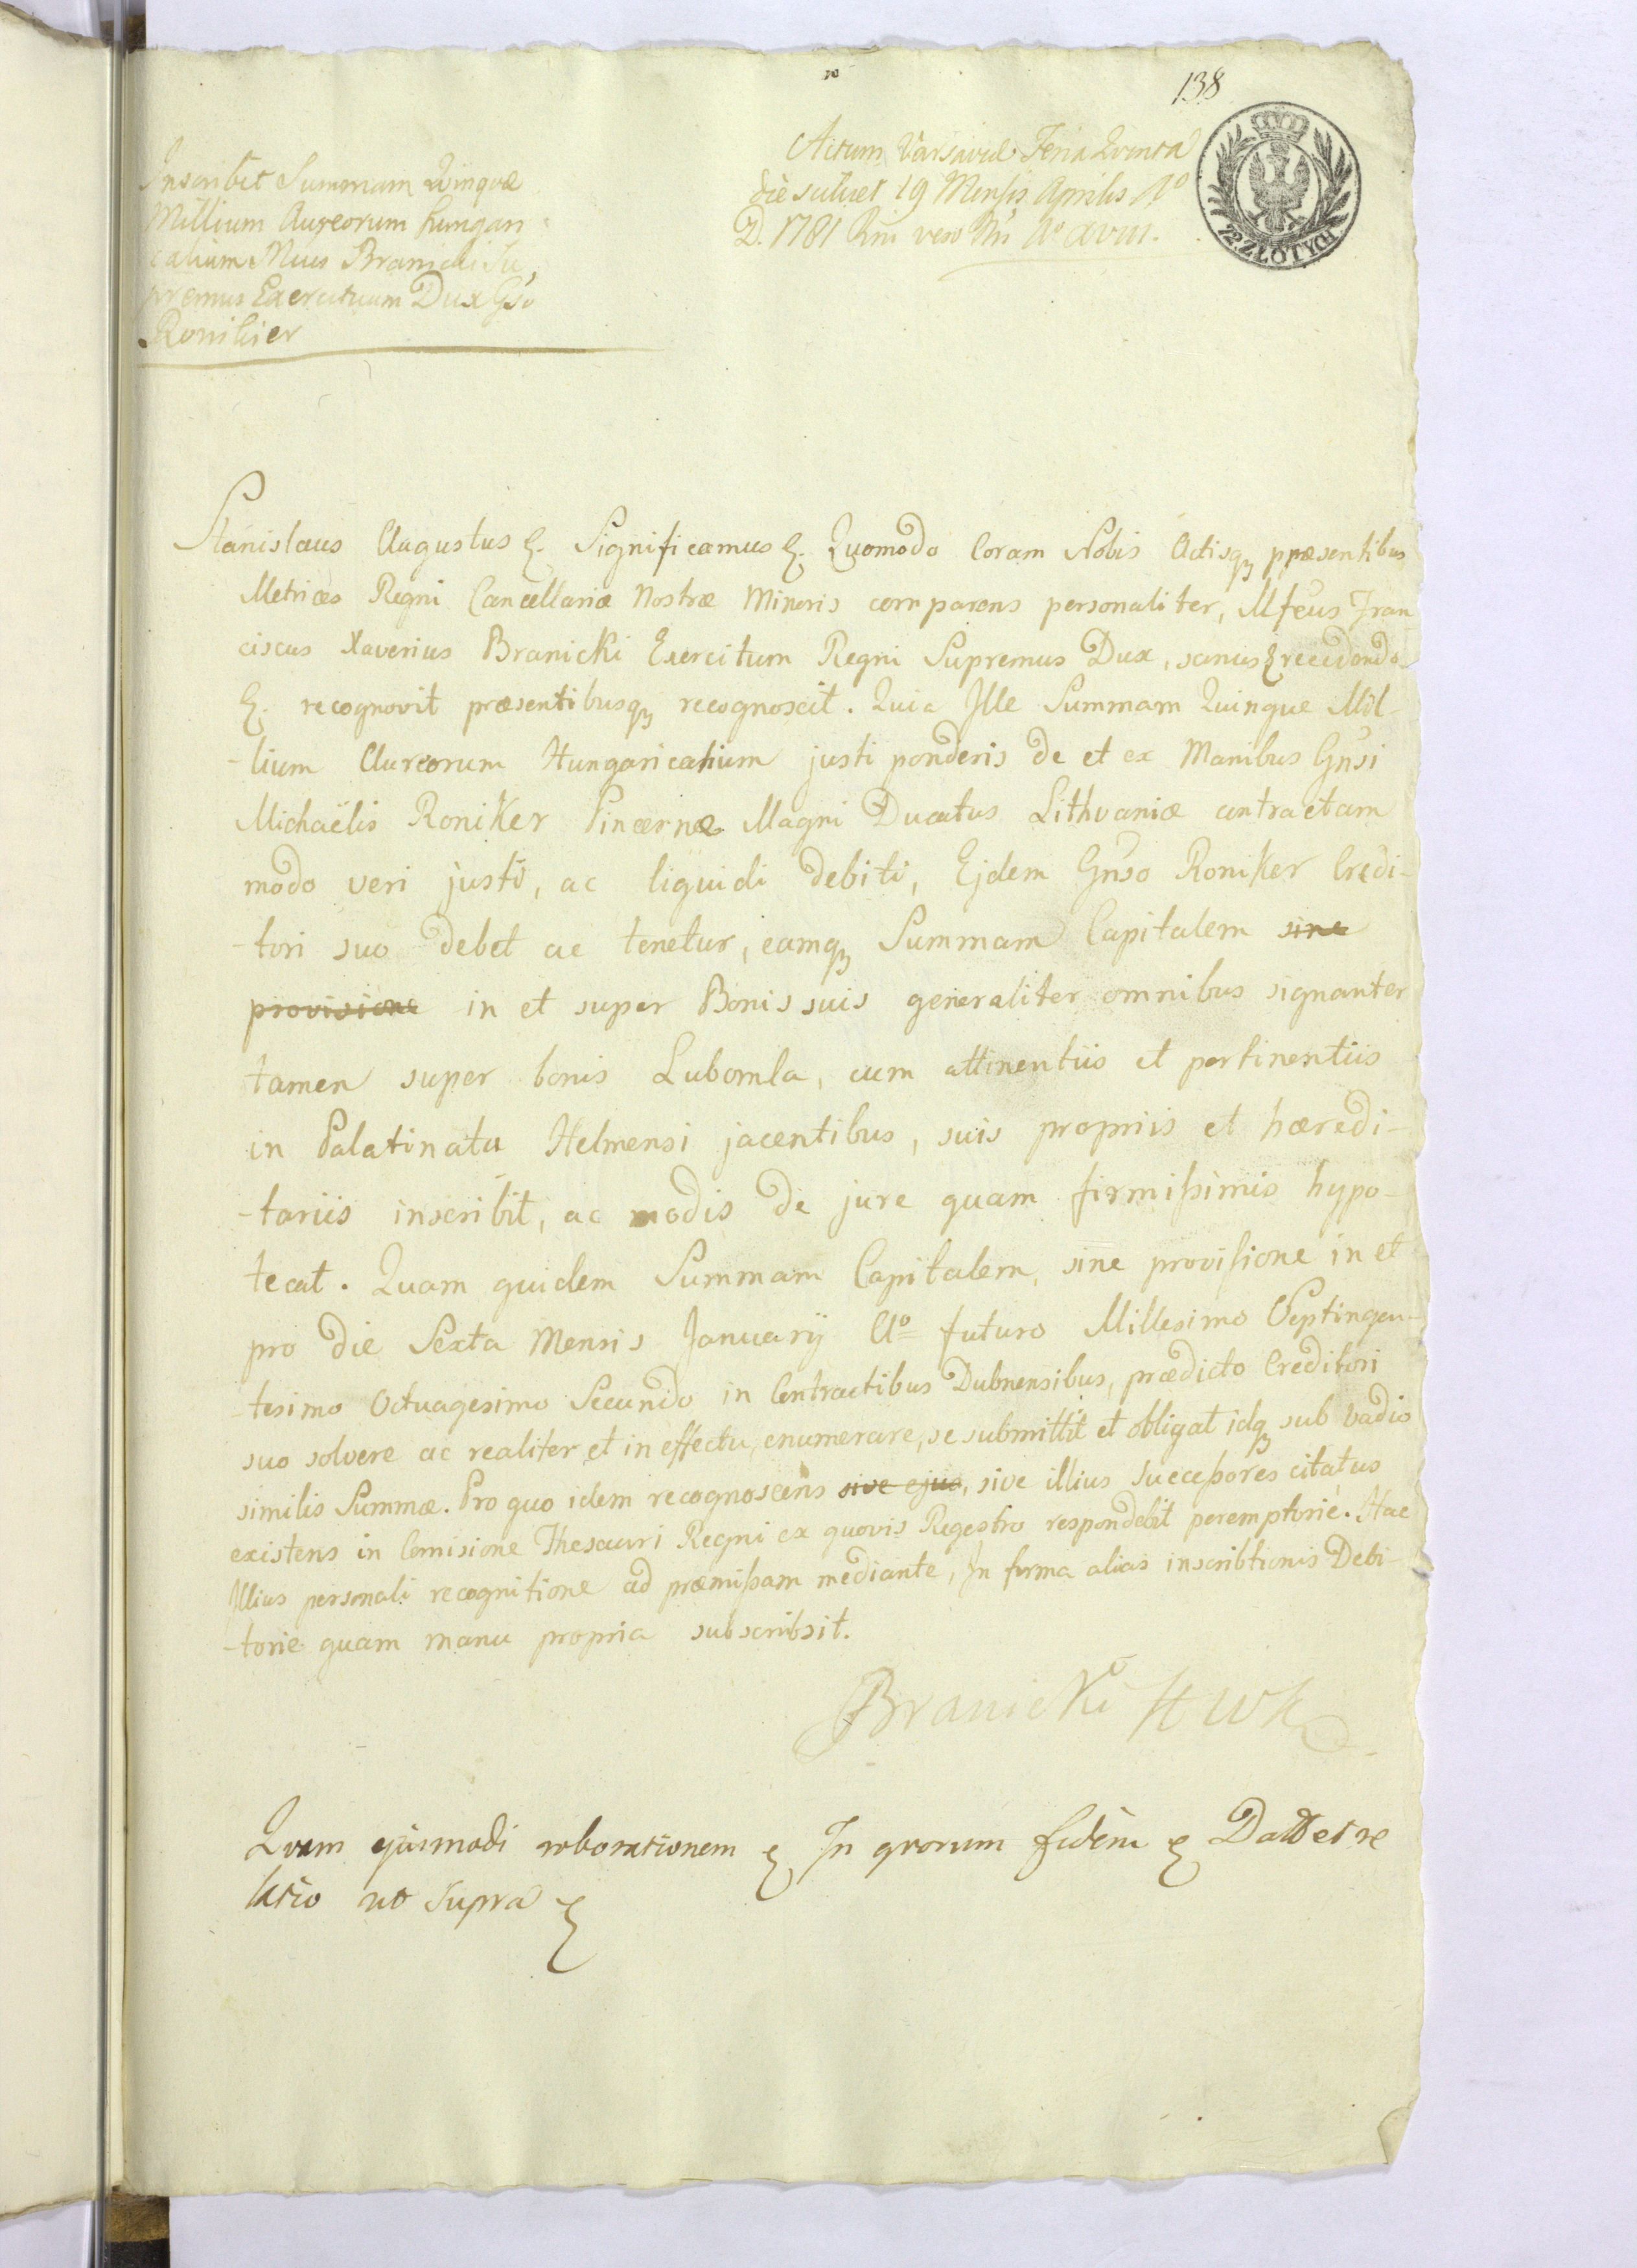 138
Inscribit Summam Quinque
Millium Aureorum hungari
calium Mcus Branicki Su
premus Exercituum Dux Gso
Ronikier
Actum Varsaviae Feria Quinta
die scilicet 19 Mensis Aprilis Ao
D. 1781 Rni vero Nri Ao XVIII.
12. ZŁOTYCH
Stanislaus Augustus &. Significamus &. Quomodo Coram Nobis Actisq3 ppraesentibus
Metrices Regni Cancellariæ Nostræ Minoris comparens personaliter, Mfcus Fran
ciscus Xaverius Branicki Exercitum Regni Supremus Dux, sanus & recedendo
&. recognovit præsentibusq3 recognoscit. Quia Ille Summam Quinque Mil-
-lium Aureorum Hungaricalium justi ponderis de et ex Manibus Gnsi
Michaëlis Roniker Pincernæ Magni Ducatus Lithvaniæ contractam
modo veri justi, ac liquidi debiti, Ejdem Gnso Roniker Credi-
-tori suo debet ac tenetur, eamq3 Summam Capitalem sine
provisione in et super Bonis suis generaliter omnibus signanter
tamen super bonis Lubomla, cum attinentiis et pertinentiis
in Palatinatu Helmensi jacentibus, suis propriis et hæredi-
-tariis inscribit, ac modis de jure quam firmissimis hypo-
tecat. Quam quidem Summam Capitalem, sine provisione in et
pro die Sexta Mensis Januarÿ Ao futuro Millesimo Septingen-
-tesimo Octuagesimo Secundo in Contractibus Dubnensibus, prædicto Creditori
suo solvere ac realiter et in effectu, enumerare, se submittit et obligat idq3 sub vadio
similis Summæ. Pro quo idem recognoscens sive ejus, sive illius Successores citatus
existens in Comisione Thesauri Regni ex quovis Regestro respondebit peremptorié. Hac
Illius personali recognitione ad præmissam mediante, In forma alias inscribtionis Debi-
-torie quam manu propria subscribsit.
Branicki HWK
Quam ejusmodi roborationem & In qvorum fidem & Datt et re
latio ut Supra &